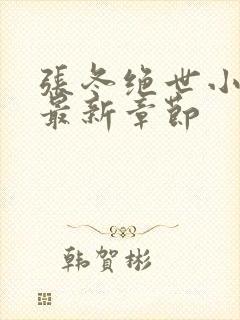 張冬绝世小
最新章節
韩賀彬